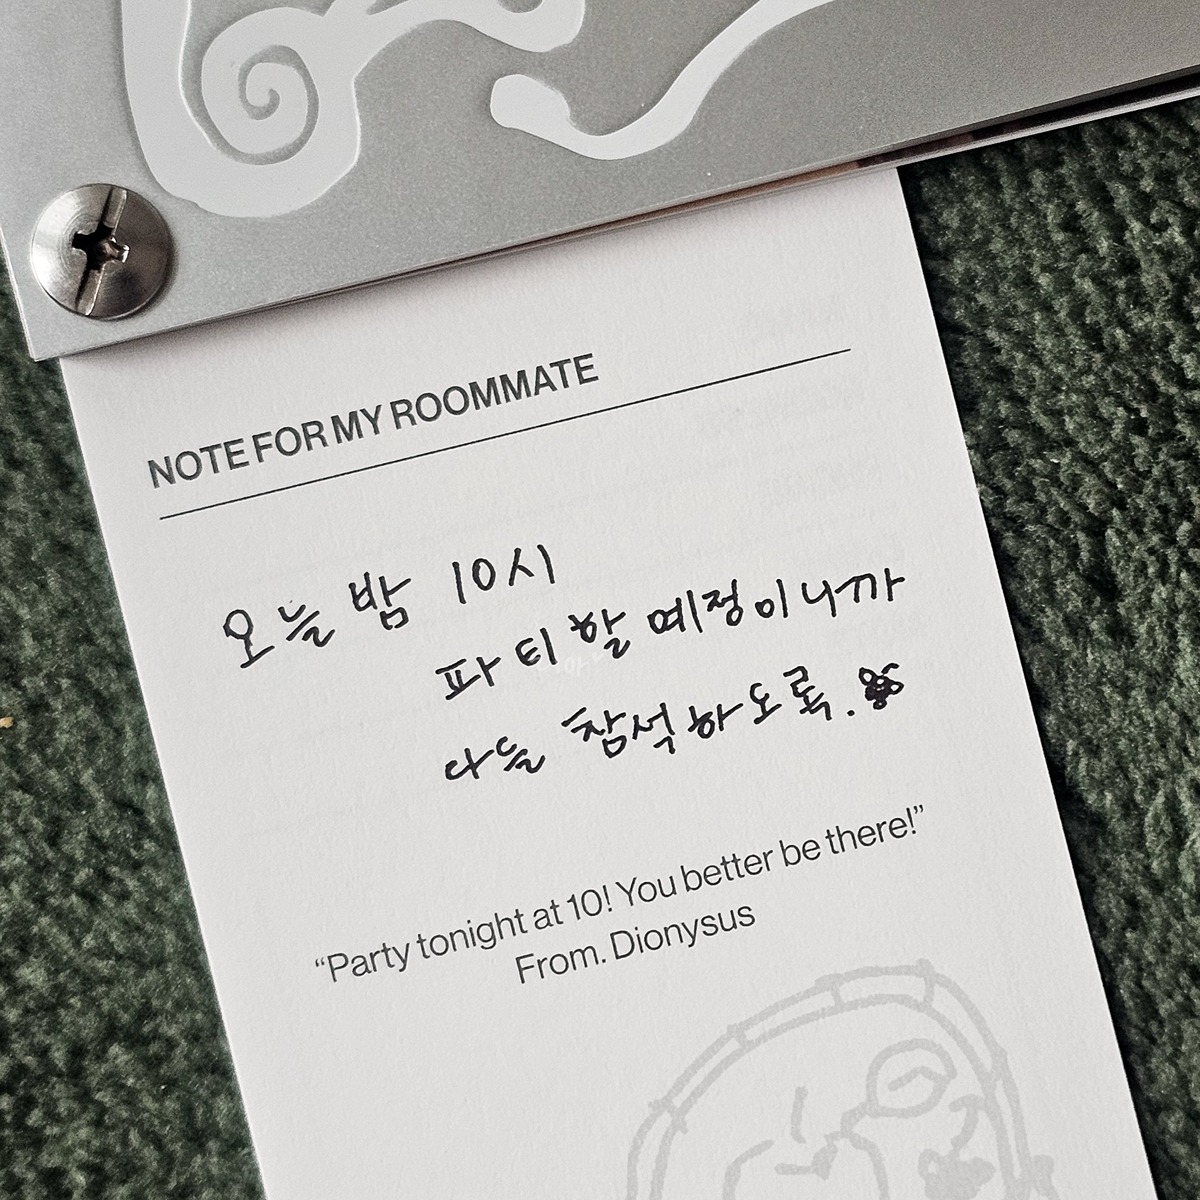 NOTE FOR MY ROOMMATE
오늘 밤 10시
파티 할 예정이니까
다들 참석하도록.
“Party tonight at 10! You better be there!”
From. Dionysus